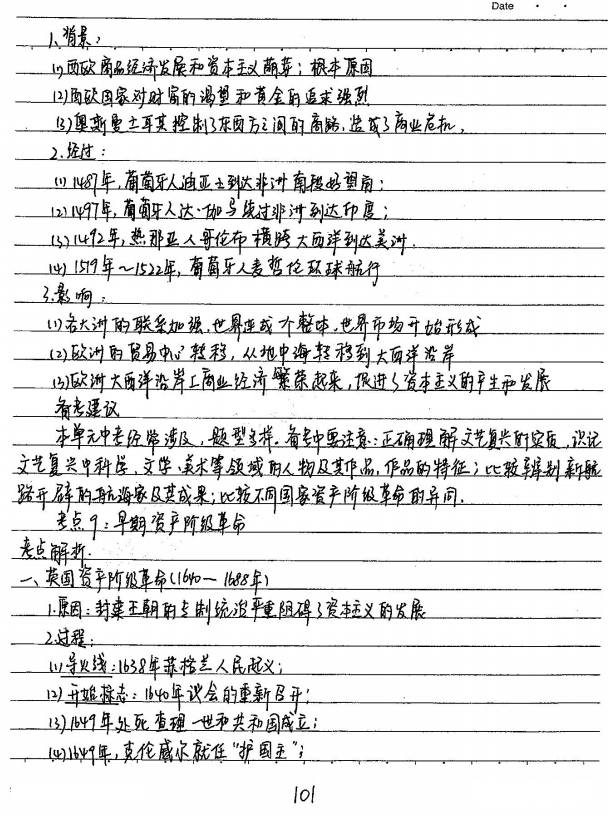 Date · ·
1.背景:
(1)西欧商品经济发展和资本主义萌芽;根本原因
(2)西欧国家对财富的渴望和黄金的追求强烈
(3)奥斯曼土耳其控制了东西方之间的商路,造成了商业危机。
2.经过:
(1)1487年,葡萄牙人迪亚士到达非洲南段好望角;
(2)1497年,葡萄牙人达·伽马绕过非洲到达印度;
(3)1492年,热那亚人哥伦布横跨大西洋到达美洲.
(4)1519年~1522年,葡萄牙人麦哲伦环球航行
3.影响:
(1)各大洲的联系加强,世界连成个整体,世界市场开始形成
(2)欧洲的贸易中心转移,从地中海转移到大西洋沿岸
(3)欧洲大西洋沿岸工商业经济繁荣起来,促进了资本主义的产生和发展
备考建议
本单元中考经常涉及,题型多样。备考中要注意:正确理解文艺复兴的实质,识记
文艺复兴中科学、文学、美术等领域的人物及其作品,作品的特征;比较辨别新航
路开辟的航海家及其成果;比较不同国家资产阶级革命的异同.
考点9:早期资产阶级革命
考点解析.
一、英国资产阶级革命(1640—1688年)
1.原因:封建王朝的专制统治严重阻碍了资本主义的发展
2.过程:
(1)导火线:1638年苏格兰人民起义;
(2)开始标志:1640年议会的重新召开;
(3)1649年处死查理一世和共和国成立;
(4)1649年,克伦威尔就任“护国主”;
101